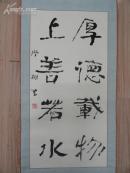 厚德載物
上善若水